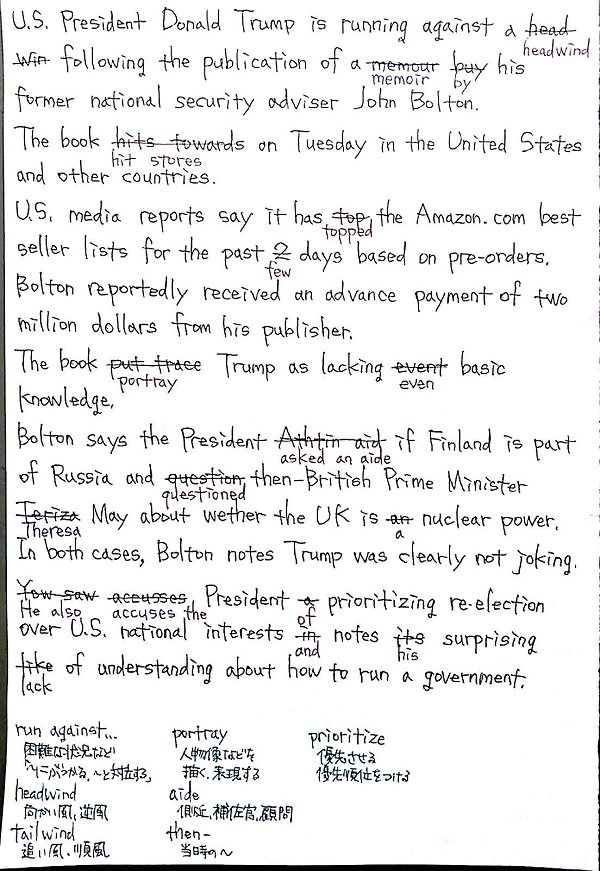 U.S. President Donald Trump is running against a head
headwind
win following the publication of a memour buy his
memoir by
former national security adviser John Bolton.
The book hits towards on Tuesday in the United States
hit stores
and other countries.
U.S. media reports say it has top the Amazon.com best
topped
seller lists for the past 2 days based on pre-orders.
few
Bolton reportedly received an advance payment of two
million dollars from his publisher.
The book put trace Trump as lacking event basic
portray even
knowledge.
Bolton says the President Athtin aid if Finland is part
asked an aide
of Russia and question then-British Prime Minister
questioned
Teriza May about wether the UK is an nuclear power.
Theresa a
In both cases, Bolton notes Trump was clearly not joking.
Yow saw accusses President a prioritizing re-election
He also accuses the of
over U.S. national interests in notes its surprising
and his
like of understanding about how to run a government.
lack
run against... portray prioritize
困難な状況など 人物像などを 優先させる
〜にぶつかる、〜と対立する、 描く、表現する 優先順位をつける
headwind aide
向かい風、逆風 側近、補佐官、顧問
tailwind then-
追い風、順風 当時の〜